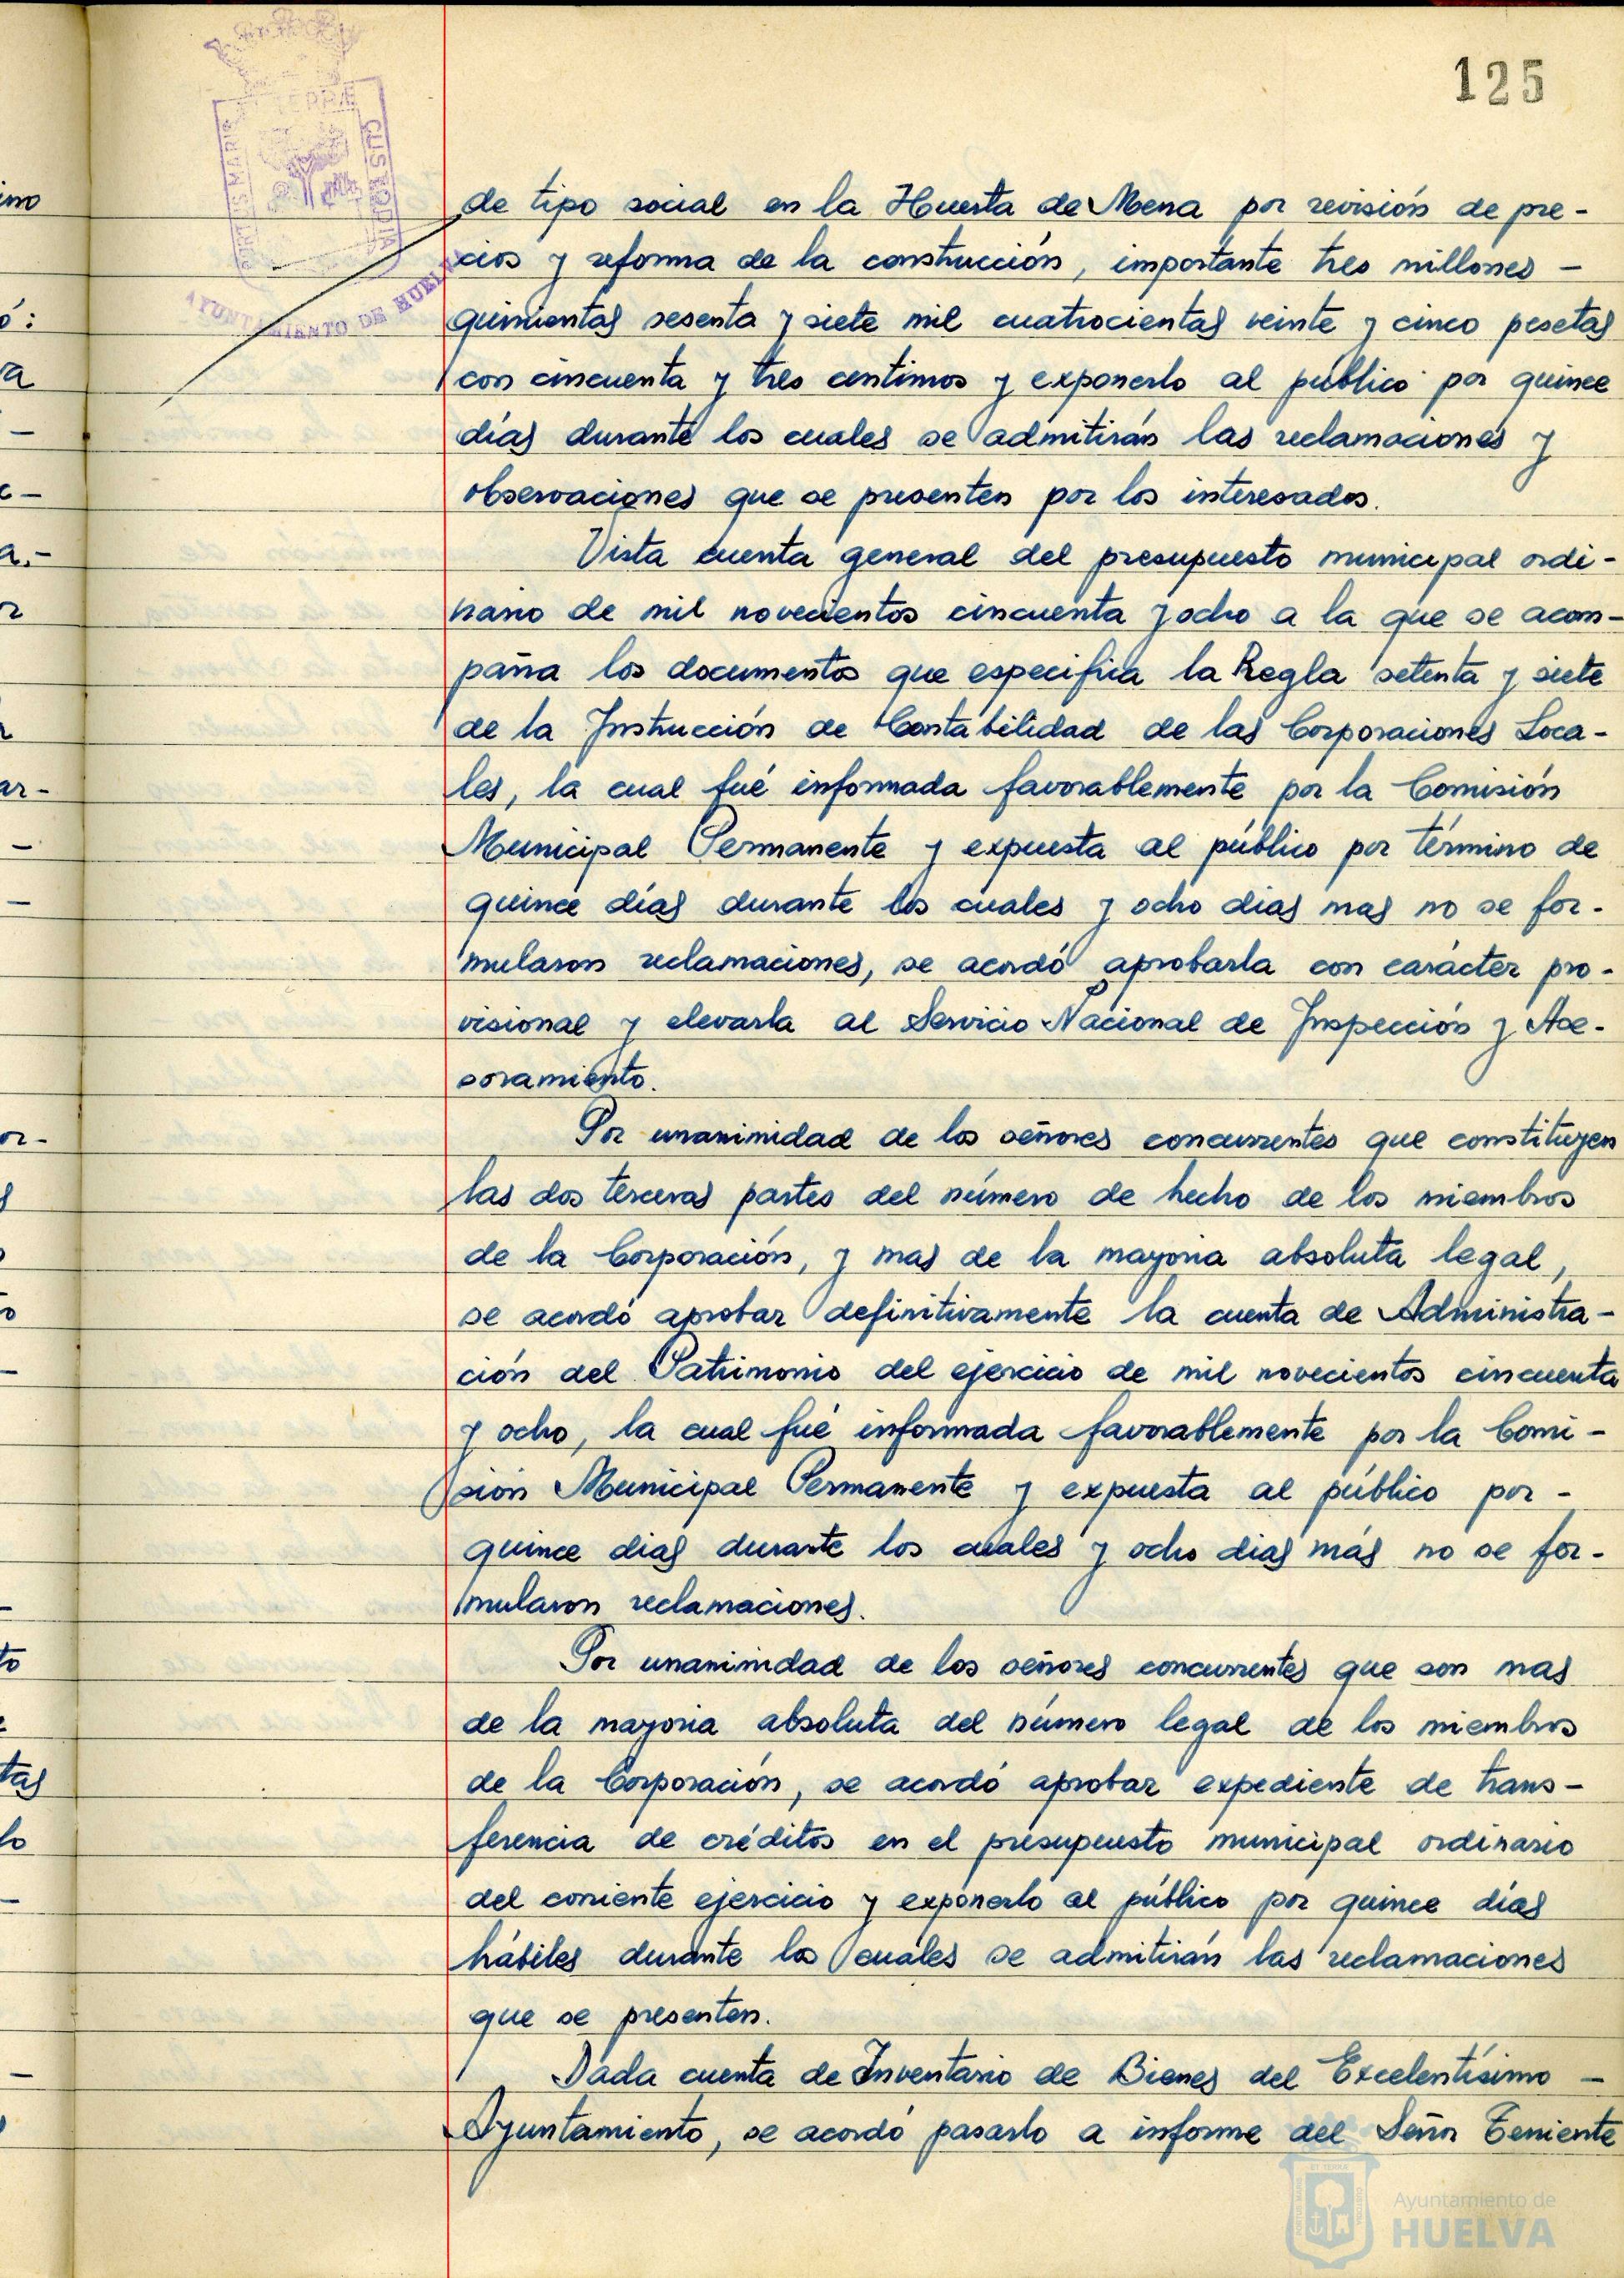 125
PORTUS MARIS
TERRÆ
CUSTODIA
AYUNTAMIENTO DE HUELVA
de tipo social en la Huerta de Mena por revisión de pre-
cios y reforma de la construcción, importante tres millones -
quinientas sesenta y siete mil cuatrocientas veinte y cinco pesetas
con cincuenta y tres centimos y exponerlo al público por quince
días durante los cuales se admitirán las reclamaciones y
observaciones que se presenten por los interesados.
Vista cuenta general del presupuesto municipal ordi-
nario de mil novecientos cincuenta y ocho a la que se acom-
paña los documentos que especifica la Regla setenta y siete
de la Instrucción de Contabilidad de las Corporaciones Loca-
les, la cual fué informada favorablemente por la Comisión
Municipal Permanente y expuesta al público por término de
quince días durante los cuales y ocho dias mas no se for-
mularon reclamaciones, se acordó aprobarla con carácter pro-
visional y elevarla al Servicio Nacional de Inspección y Ase-
soramiento.
Por unanimidad de los señores concurrentes que constituyen
las dos terceras partes del número de hecho de los miembros
de la Corporación, y mas de la mayoria absoluta legal,
se acordó aprobar definitivamente la cuenta de Administra-
ción del Patrimonio del ejercicio de mil novecientos cincuenta
y ocho, la cual fué informada favorablemente por la Comi-
sión Municipal Permanente y expuesta al público por -
quince dias durante los cuales y ocho dias más no se for-
mularon reclamaciones.
Por unanimidad de los señores concurrentes que son mas
de la mayoria absoluta del número legal de los miembros
de la Corporación, se acordó aprobar expediente de trans-
ferencia de créditos en el presupuesto municipal ordinario
del corriente ejercicio y exponerlo al público por quince días
hábiles durante los cuales se admitirán las reclamaciones
que se presenten.
Dada cuenta de Inventario de Bienes del Excelentísimo -
Ayuntamiento, se acordó pasarlo a informe del Señor Teniente
Ayuntamiento de
HUELVA